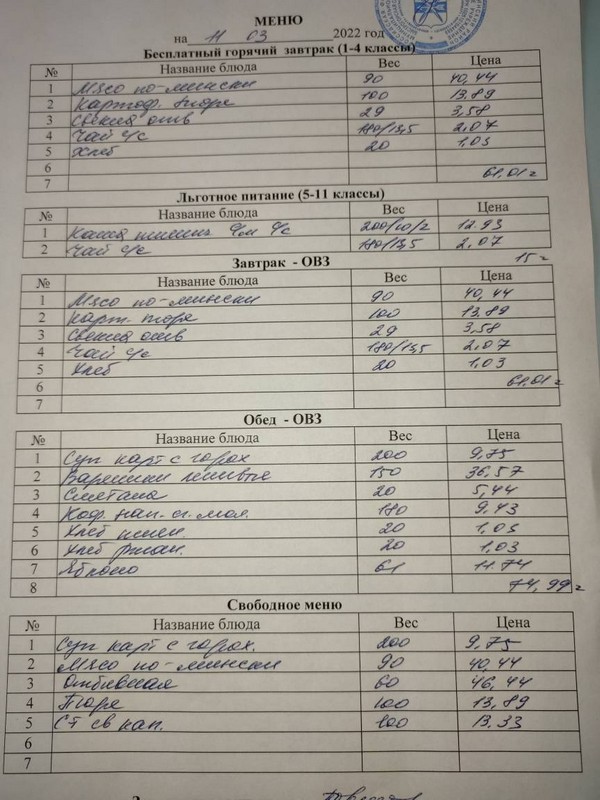 МЕНЮ
на 11 03 2022 год
Бесплатный горячий завтрак (1-4 классы)
№ Название блюда Вес Цена
1 Мясо по-мински 90 40,44
2 Картоф. пюре 100 13,89
3 Свекла отв 29 3,58
4 Чай с/с 180/13,5 2,07
5 Хлеб 20 1,03
6
7 61,01 г
Льготное питание (5-11 классы)
№ Название блюда Вес Цена
1 Каша пшенн с/м с/с 200/10/2 12.93
2 Чай с/с 180/13,5 2,07
15 г
Завтрак - ОВЗ
№ Название блюда Вес Цена
1 Мясо по-мински 90 40,44
2 Карт. пюре 100 13,89
3 Свекла отв 29 3,58
4 Чай с/с 180/13,5 2,07
5 Хлеб 20 1,03
6 61,01 г
7
Обед - ОВЗ
№ Название блюда Вес Цена
1 Суп карт с горох 200 9,75
2 Вареники ленивые 150 36,57
3 Сметана 20 5,44
4 Коф. нап. сг. мол. 180 9,43
5 Хлеб пшен. 20 1,03
6 Хлеб ржан. 20 1,03
7 Яблоко 61 11.74
8 74,99 г
Свободное меню
№ Название блюда Вес Цена
1 Суп карт с горох. 200 9,75
2 Мясо по-мински 90 40,44
3 Отбивная 60 46,44
4 Пюре 100 13,89
5 СТ св кап. 100 13.33
6
7